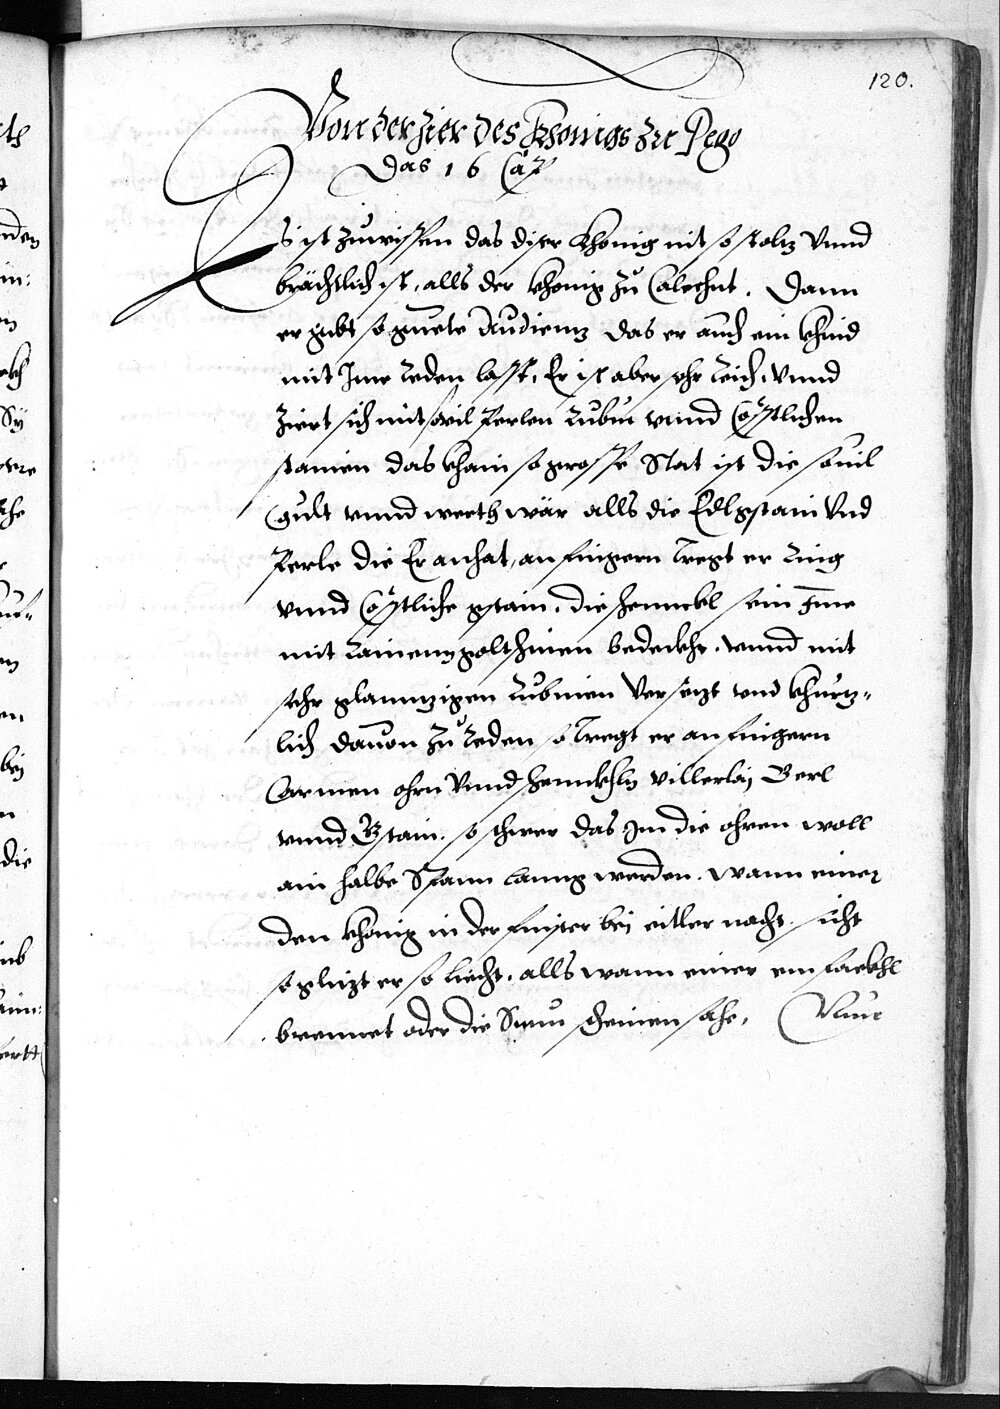 120.
Von der Zier des Khonigs zu Pego
Das 16 Cap
Es ist zuwissen das diser Khönig nit so stoltz Vnnd
brächtlich ist, alls der khönig zu Calechut. Dann
er gibt so guete Audientz das er auch ein khind
mit Ime Reden lasst, Er ist aber sehr Reich, Vnnd
Ziert sich mit sovil Perlen Rubin vnnd Cöstlichen
stainen das khain so grosse Stat ist die souil
Gult vnnd werth wär alls die Edlgstain Vnd
Perle die Er anhat, an fingern Tregt er Ring
vnnd Cöstliche gstain, die schennckl sein Ime
mit Rainem goltschinen bedeckht, vnnd mit
sehr glanntzigen Rubinen Versetzt vnd khurtz-
lich dauon zu Reden so Tregt er an fingern
Armen ohrn Vnnd schennckhln villerlaj Berl
vnnd Gstain, so schwer das Im die ohren woll
ain halbe Spann lanng werden. Wann einer
den khönig in der finster bej eitler nacht sicht
so glintzt er so liecht, alls wann einer ein fackhl
brennet oder die Sunn scheinen sehe,